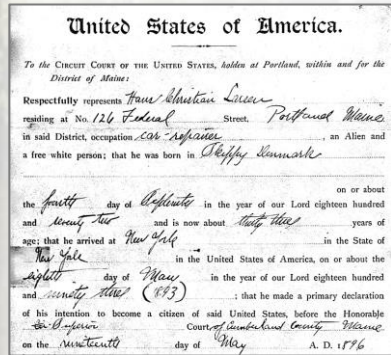 United States of America.
To the CIRCUIT COURT OF THE UNITED STATES, holden at Portland, within and for the
District of Maine:
Respectfully represents Hans Christian Larsen
residing at No. 126 Federal Street, Portland Maine
in said District, occupation car-repairer, an Alien and
a free white person; that he was born in Denmark
on or about
the fourth day of in the year of our Lord eighteen hundred
and seventy two and is now about thirty three years of
age; that he arrived at New York in the State of
New York in the United States of America, on or about the
eighth day of May in the year of our Lord eighteen hundred
and ninety three (1893); that he made a primary declaration
of his intention to become a citizen of said United States, before the Honorable
Superior Court, of Cumberland County Maine
on the nineteenth day of May A. D. 1896